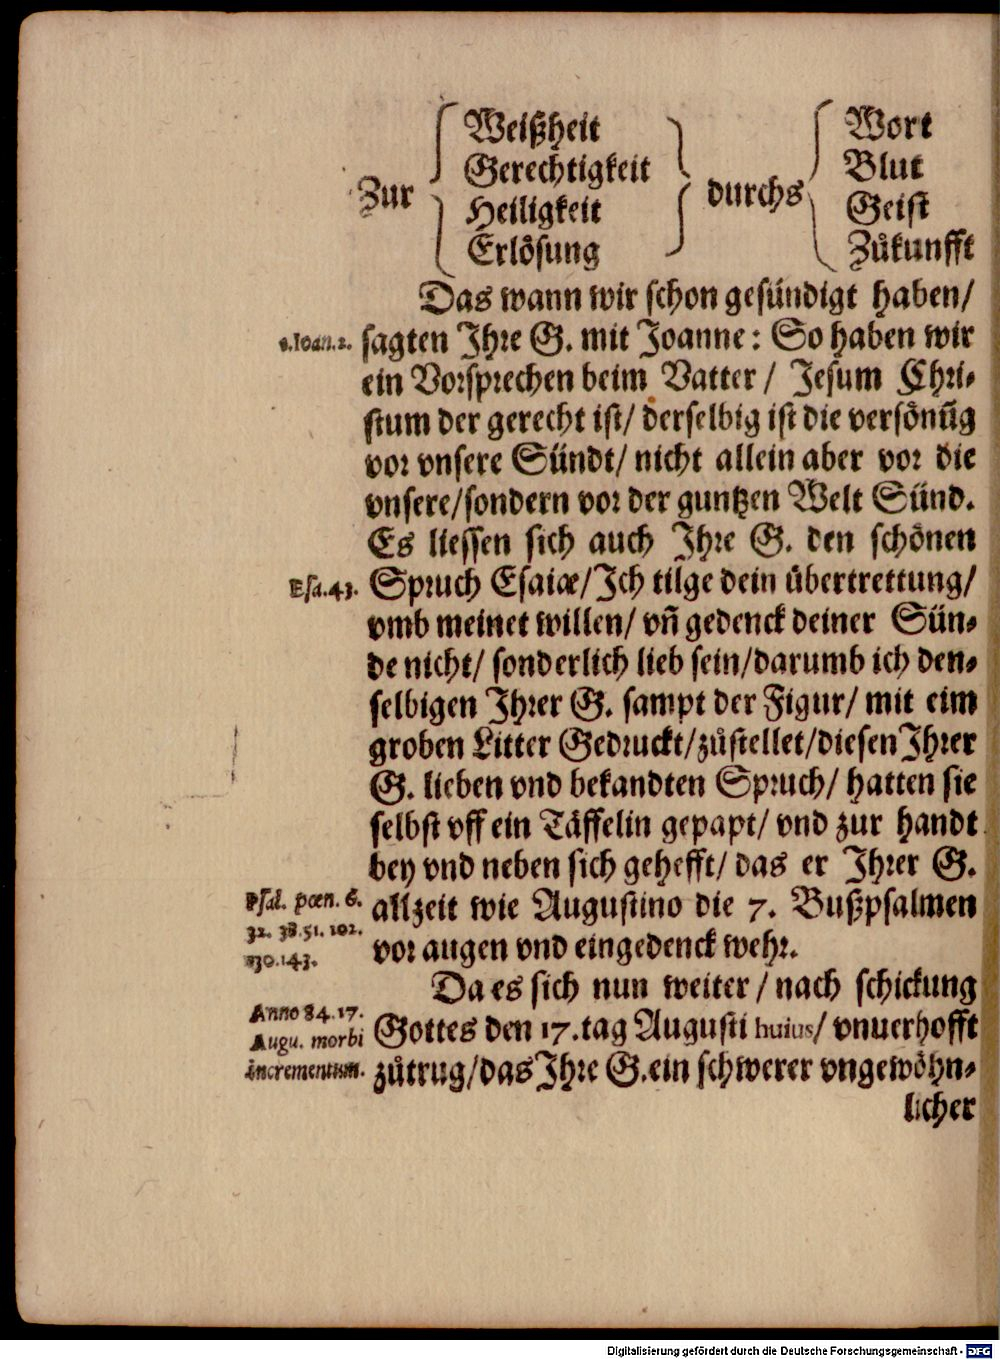 Weißheit Wort
Gerechtigkeit Blut
Zur durchs
Heiligkeit Geist
Erlösung Zůkunfft
Das wann wir schon gesündigt haben/
1.Ioan.2. sagten Ihre G. mit Joanne: So haben wir
ein Vorsprechen beim Vatter / Jesum Chri-
stum der gerecht ist/ derselbig ist die versönũg
vor vnsere Sündt/ nicht allein aber vor die
vnsere/sondern vor der guntzen Welt Sünd.
Es liessen sich auch Ihre G. den schönen
Esa.43. Spruch Esaiæ/Ich tilge dein übertrettung/
vmb meinet willen/ vñ gedenck deiner Sün-
de nicht/ sonderlich lieb sein/darumb ich den-
selbigen Ihrer G. sampt der Figur/ mit eim
groben Litter Gedruckt/zůstellet/diesen Ihrer
G. lieben vnd bekandten Spruch/ hatten sie
selbst vff ein Täffelin gepapt/ vnd zur handt
bey vnd neben sich gehefft/ das er Ihrer G.
Psal. pœn. 6. allzeit wie Augustino die 7. Bußpsalmen
32. 38.51. 102.
130.143. vor augen vnd eingedenck wehr.
Da es sich nun weiter / nach schickung
Anno 84.17. Gottes den 17.tag Augusti huius/ vnuerhofft
Augu. morbi
incrementum. zůtrug/das Ihre G.ein schwerer vngewöhn-
licher
Digitalisierung gefördert durch die Deutsche Forschungsgemeinschaft - DFG